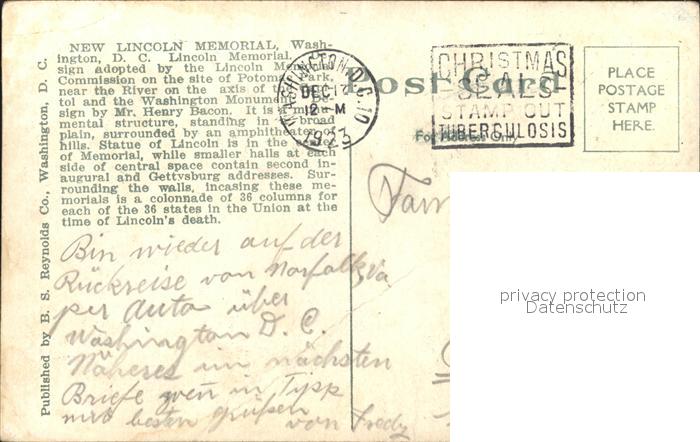 NEW LINCOLN MEMORIAL, Wash-
ington, D. C. Lincoln Memorial.
sign adopted by the Lincoln Mem
Commission on the site of Potomac Park,
near the River on the axis of t
tol and the Washington Monum
sign by Mr. Henry Bacon. It is a
mental structure, standing in a broad
plain, surrounded by an amphitheater of
hills. Statue of Lincoln is in the ce
of Memorial, while smaller halls at each
side of central space contain second in-
augural and Gettysburg addresses. Sur-
rounding the walls, incasing these me-
morials is a colonnade of 36 columns for
each of the 36 states in the Union at the
time of Lincoln's death.
Published by B. S. Reynolds Co., Washington, D. C.
Post Card
For Address Only
WASHINGTON, D.C. 10
DEC 17
12-M
1923
CHRISTMAS
SEALS
STAMP OUT
TUBERCULOSIS
PLACE
POSTAGE
STAMP
HERE.
Bin wieder auf der
Rückreise von Norfolk, Va
per Auto über
Washington D. C.
Näheres im nächsten
Briefe
mit besten Grüßen
von Fredy
privacy protection
Datenschutz